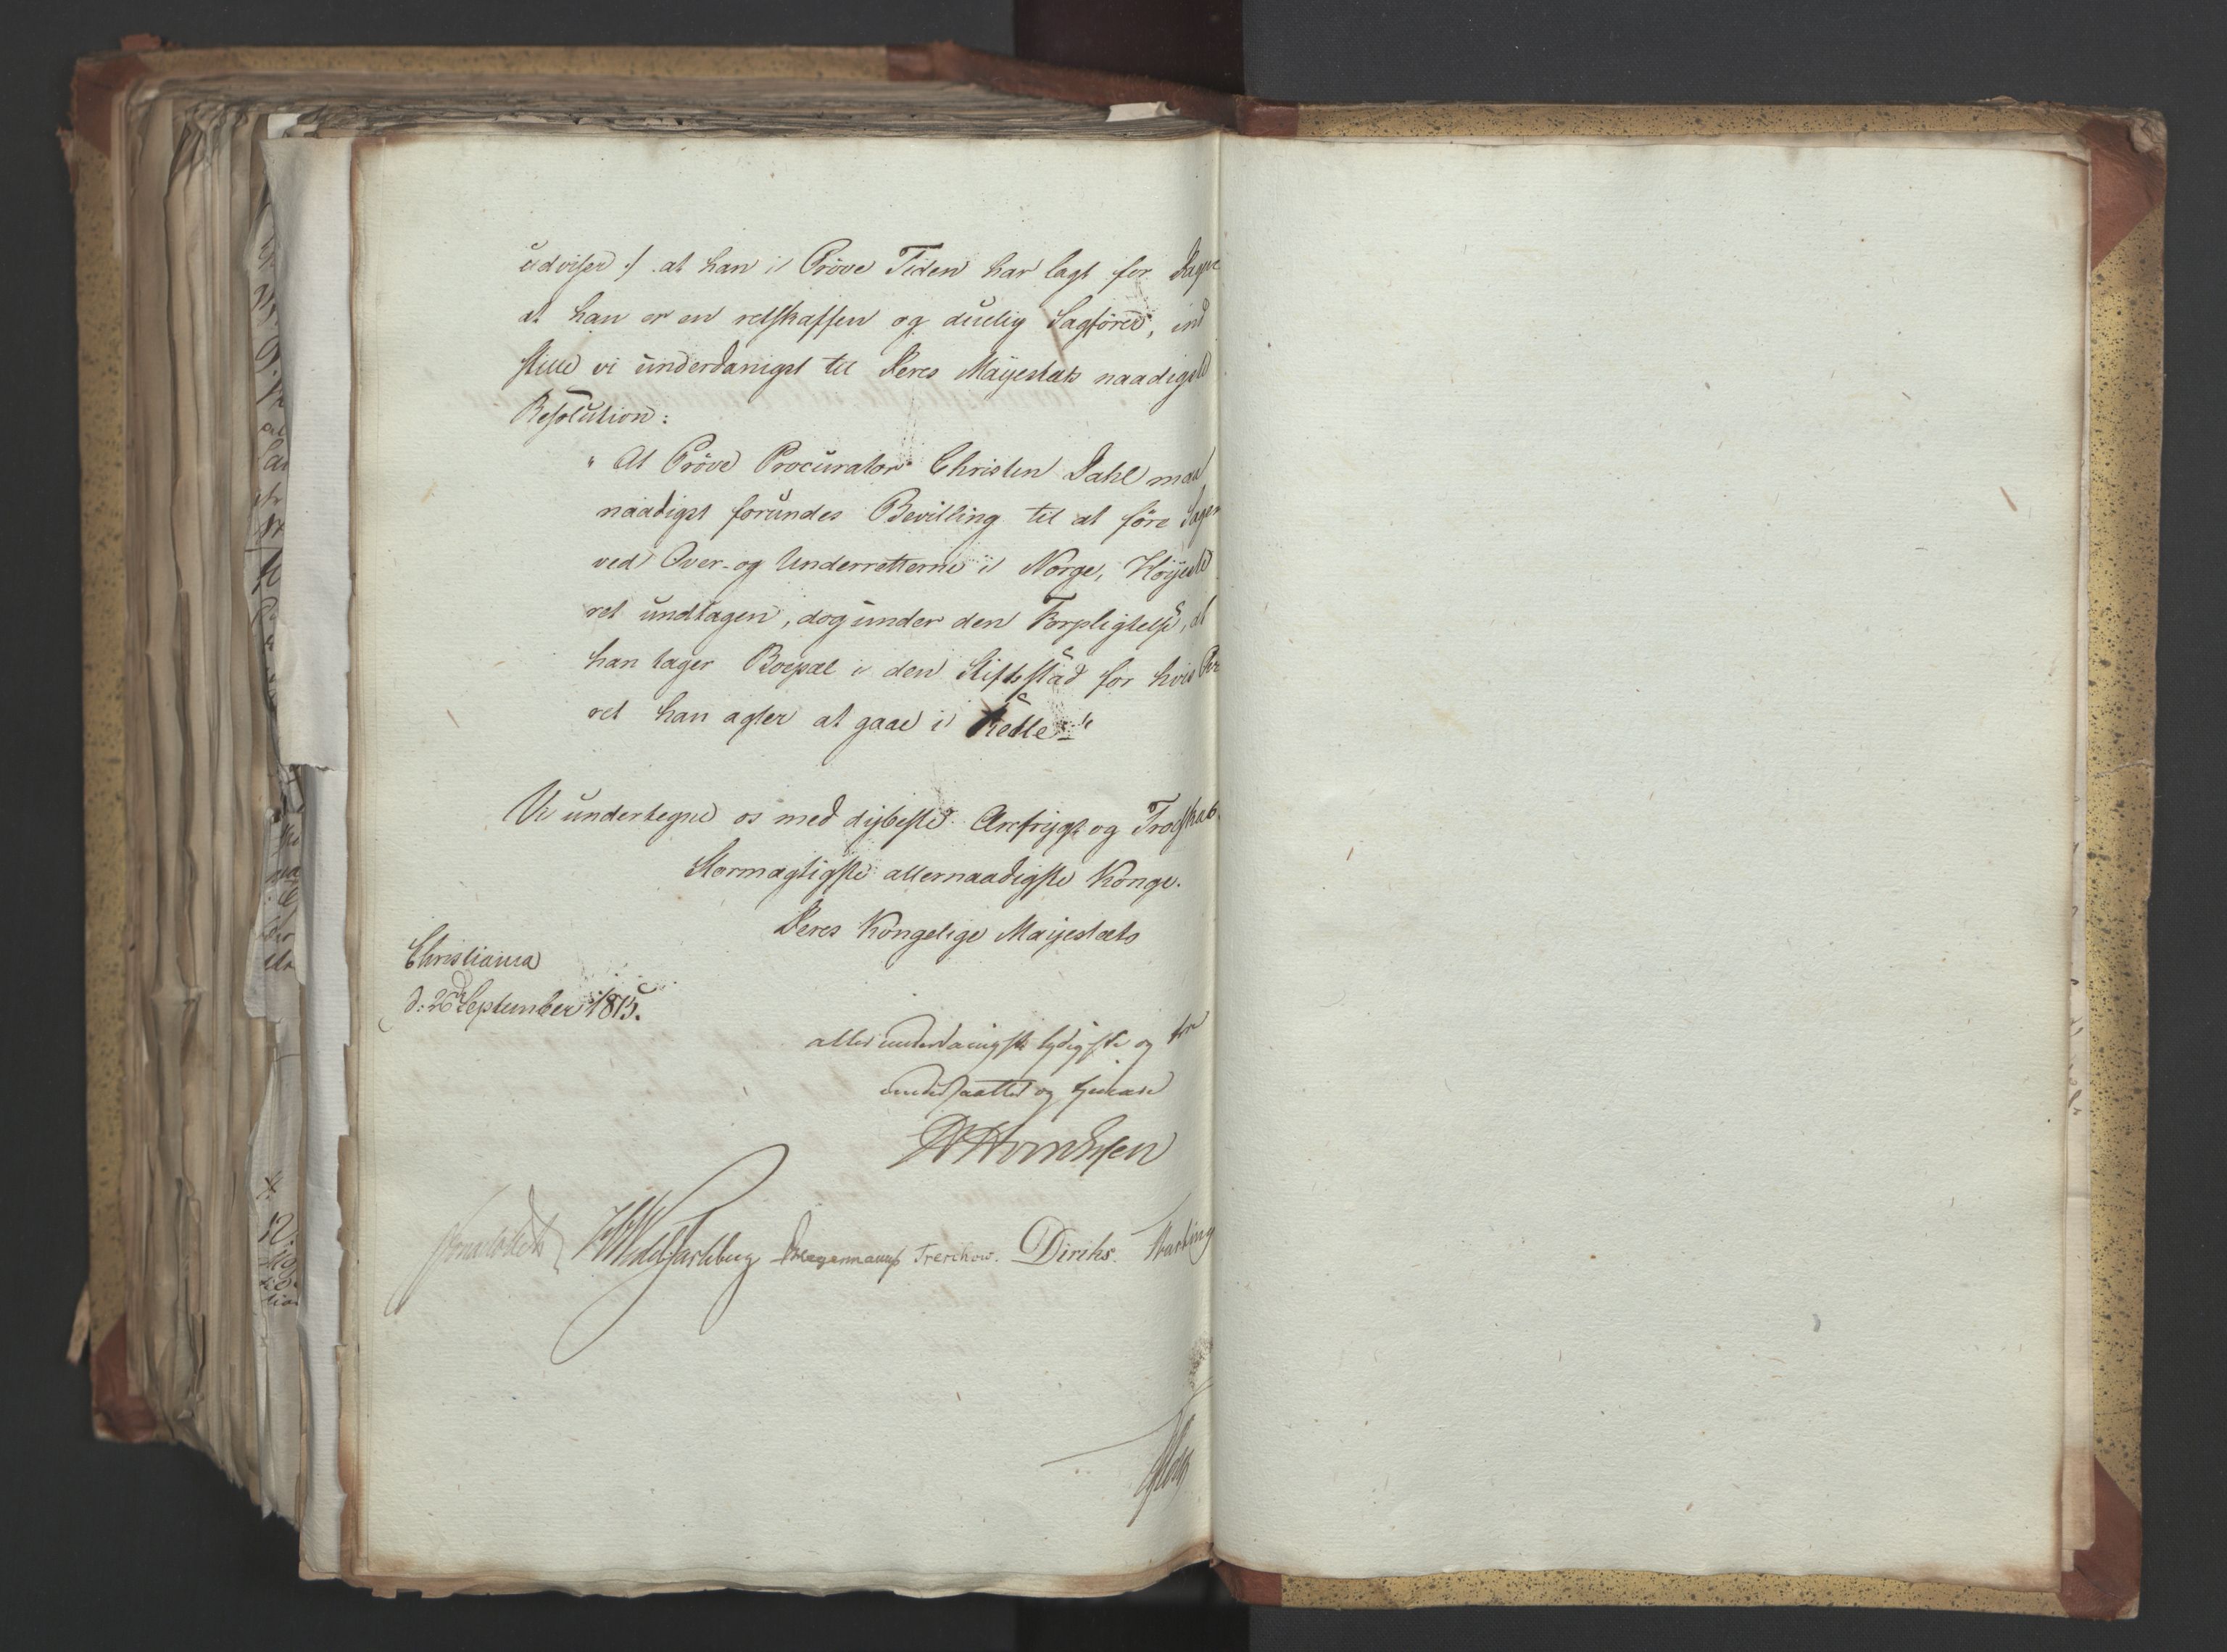 udviser :/ at han i Pröve Tiden har lagt for Dagen
at han er en retskaffen og duelig Sagförer, ind
stille vi underdanigst til Deres Mayestæts naadigste
Resolution:
" At Pröve Procurator Christen Dahl maa
naadigst forundes Bevilling til at före Sager
ved Over- og Underretterne i Norge, Höyeste
ret undtagen, dog under den Forpligtelse, at
han tager Boepæl i den Stiftstad for hvis Over
ret han agter at gaae i Rette."
Vi undertegne os med dybeste Ærefrygt og Troeskab
Stormægtigste allernaadigste Konge.
Deres Kongelige Mayestæts
Christiania
d: 26de September 1815.
allerunderdanigste lydigste og troe
undersaatter og tjenere
Thomesen
HWedelJarlsberg Hegermann Treschow. Diriks. Mariboe